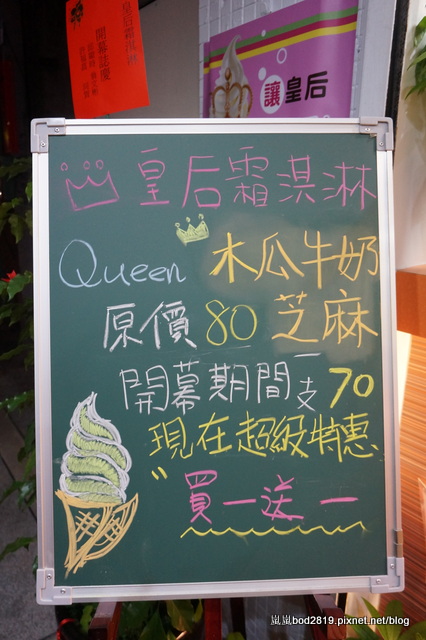 皇后霜淇淋
開幕誌慶
讓皇后
皇后霜淇淋
Queen 木瓜牛奶
原價80 芝麻
開幕期間支70
現在超級特惠
"買一送一
嵐嵐bod2819.pixnet.net/blog